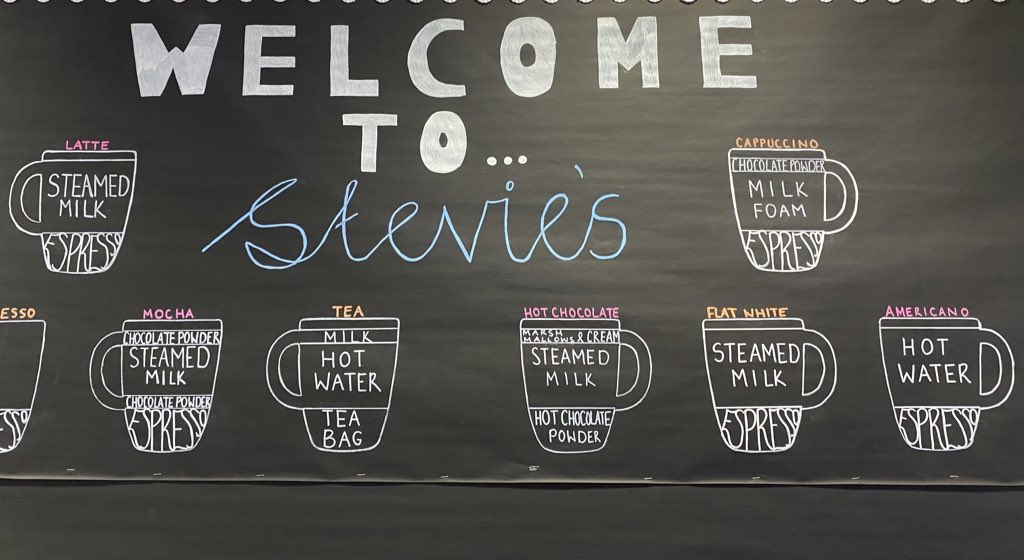 WELCOME
TO...
Stevie's
LATTE
STEAMED
MILK
ESPRESSO
CAPPUCCINO
CHOCOLATE POWDER
MILK
FOAM
ESPRESSO
ESSO
ESSO
MOCHA
CHOCOLATE POWDER
STEAMED
MILK
CHOCOLATE POWDER
ESPRESSO
TEA
MILK
HOT
WATER
TEA
BAG
HOT CHOCOLATE
MARSH
MALLOWS & CREAM
STEAMED
MILK
HOT CHOCOLATE
POWDER
FLAT WHITE
STEAMED
MILK
ESPRESSO
AMERICANO
HOT
WATER
ESPRESSO